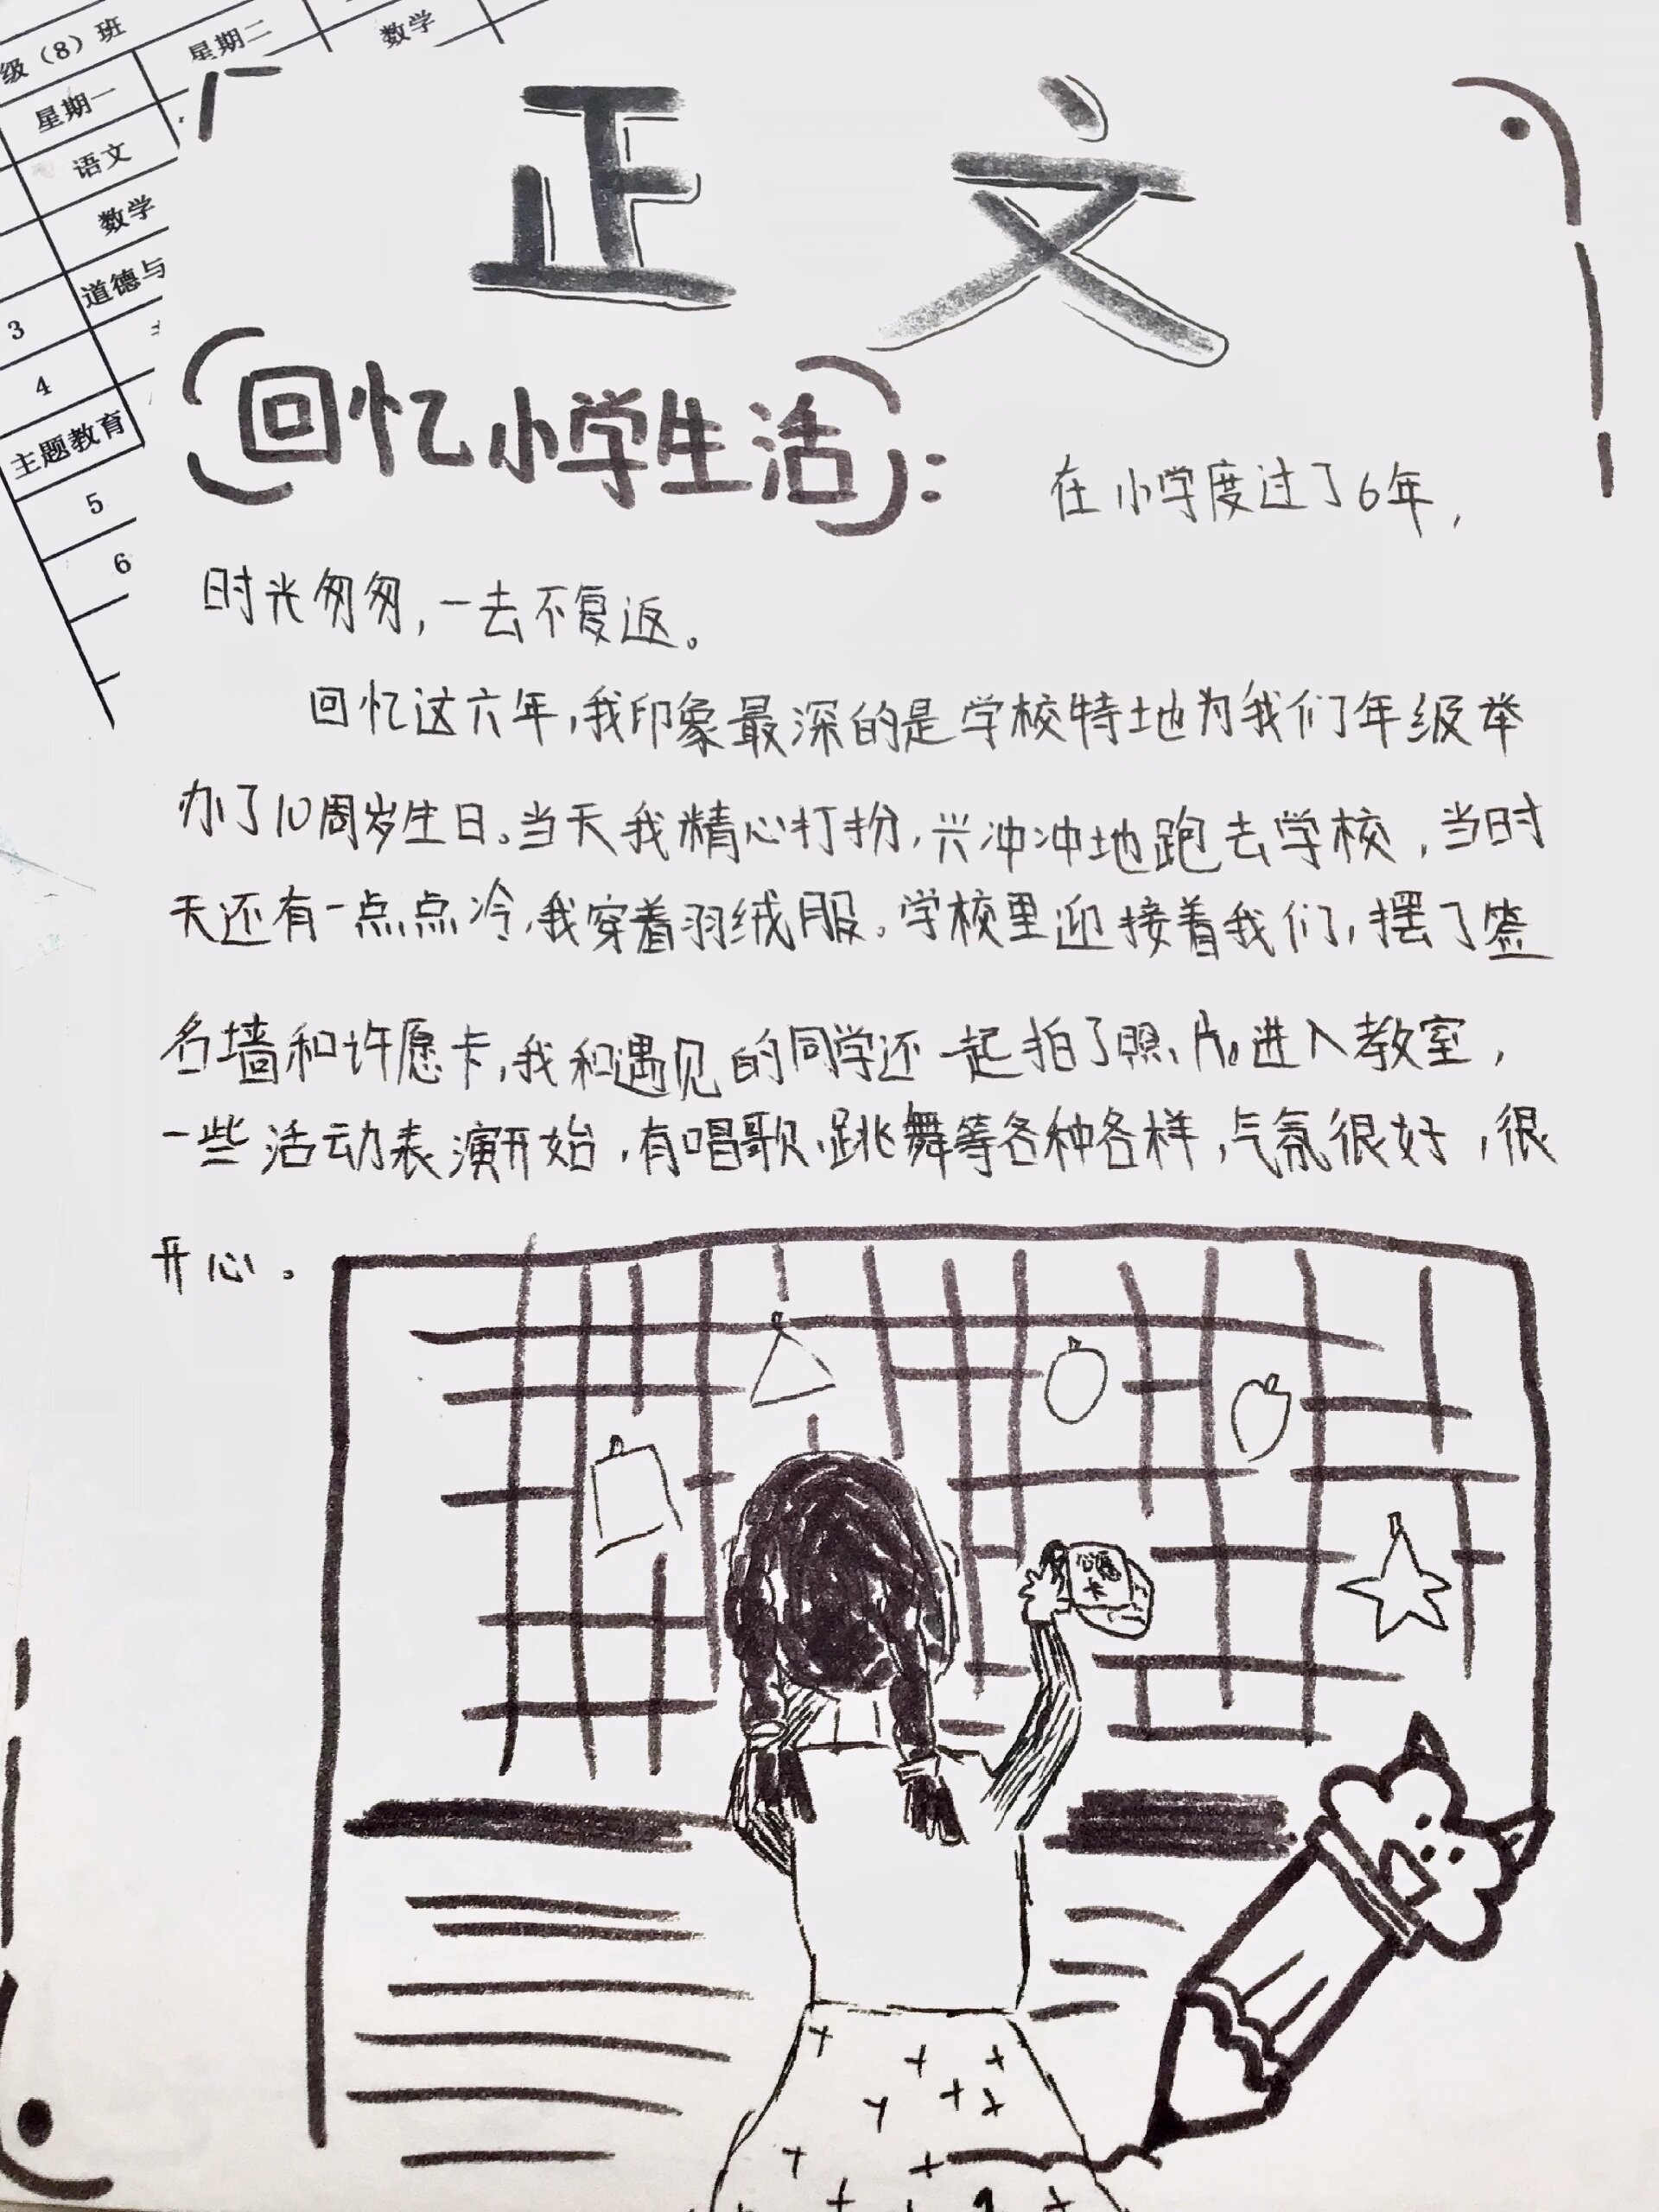 级（8）班
星期一
星期二
数学
语文
数学
道德与
3
4
主题教育
5
6
正文
（回忆小学生活）：在小学度过了6年，
时光匆匆，一去不复返。
回忆这六年，我印象最深的是学校特地为我们年级举
办了10周岁生日。当天我精心打扮，兴冲冲地跑去学校，当时
天还有一点点冷，我穿着羽绒服。学校里迎接着我们，摆了签
名墙和许愿卡，我和遇见的同学还一起拍了照片。进入教室，
一些活动表演开始，有唱歌、跳舞等各种各样，气氛很好，很
开心。
心愿
卡